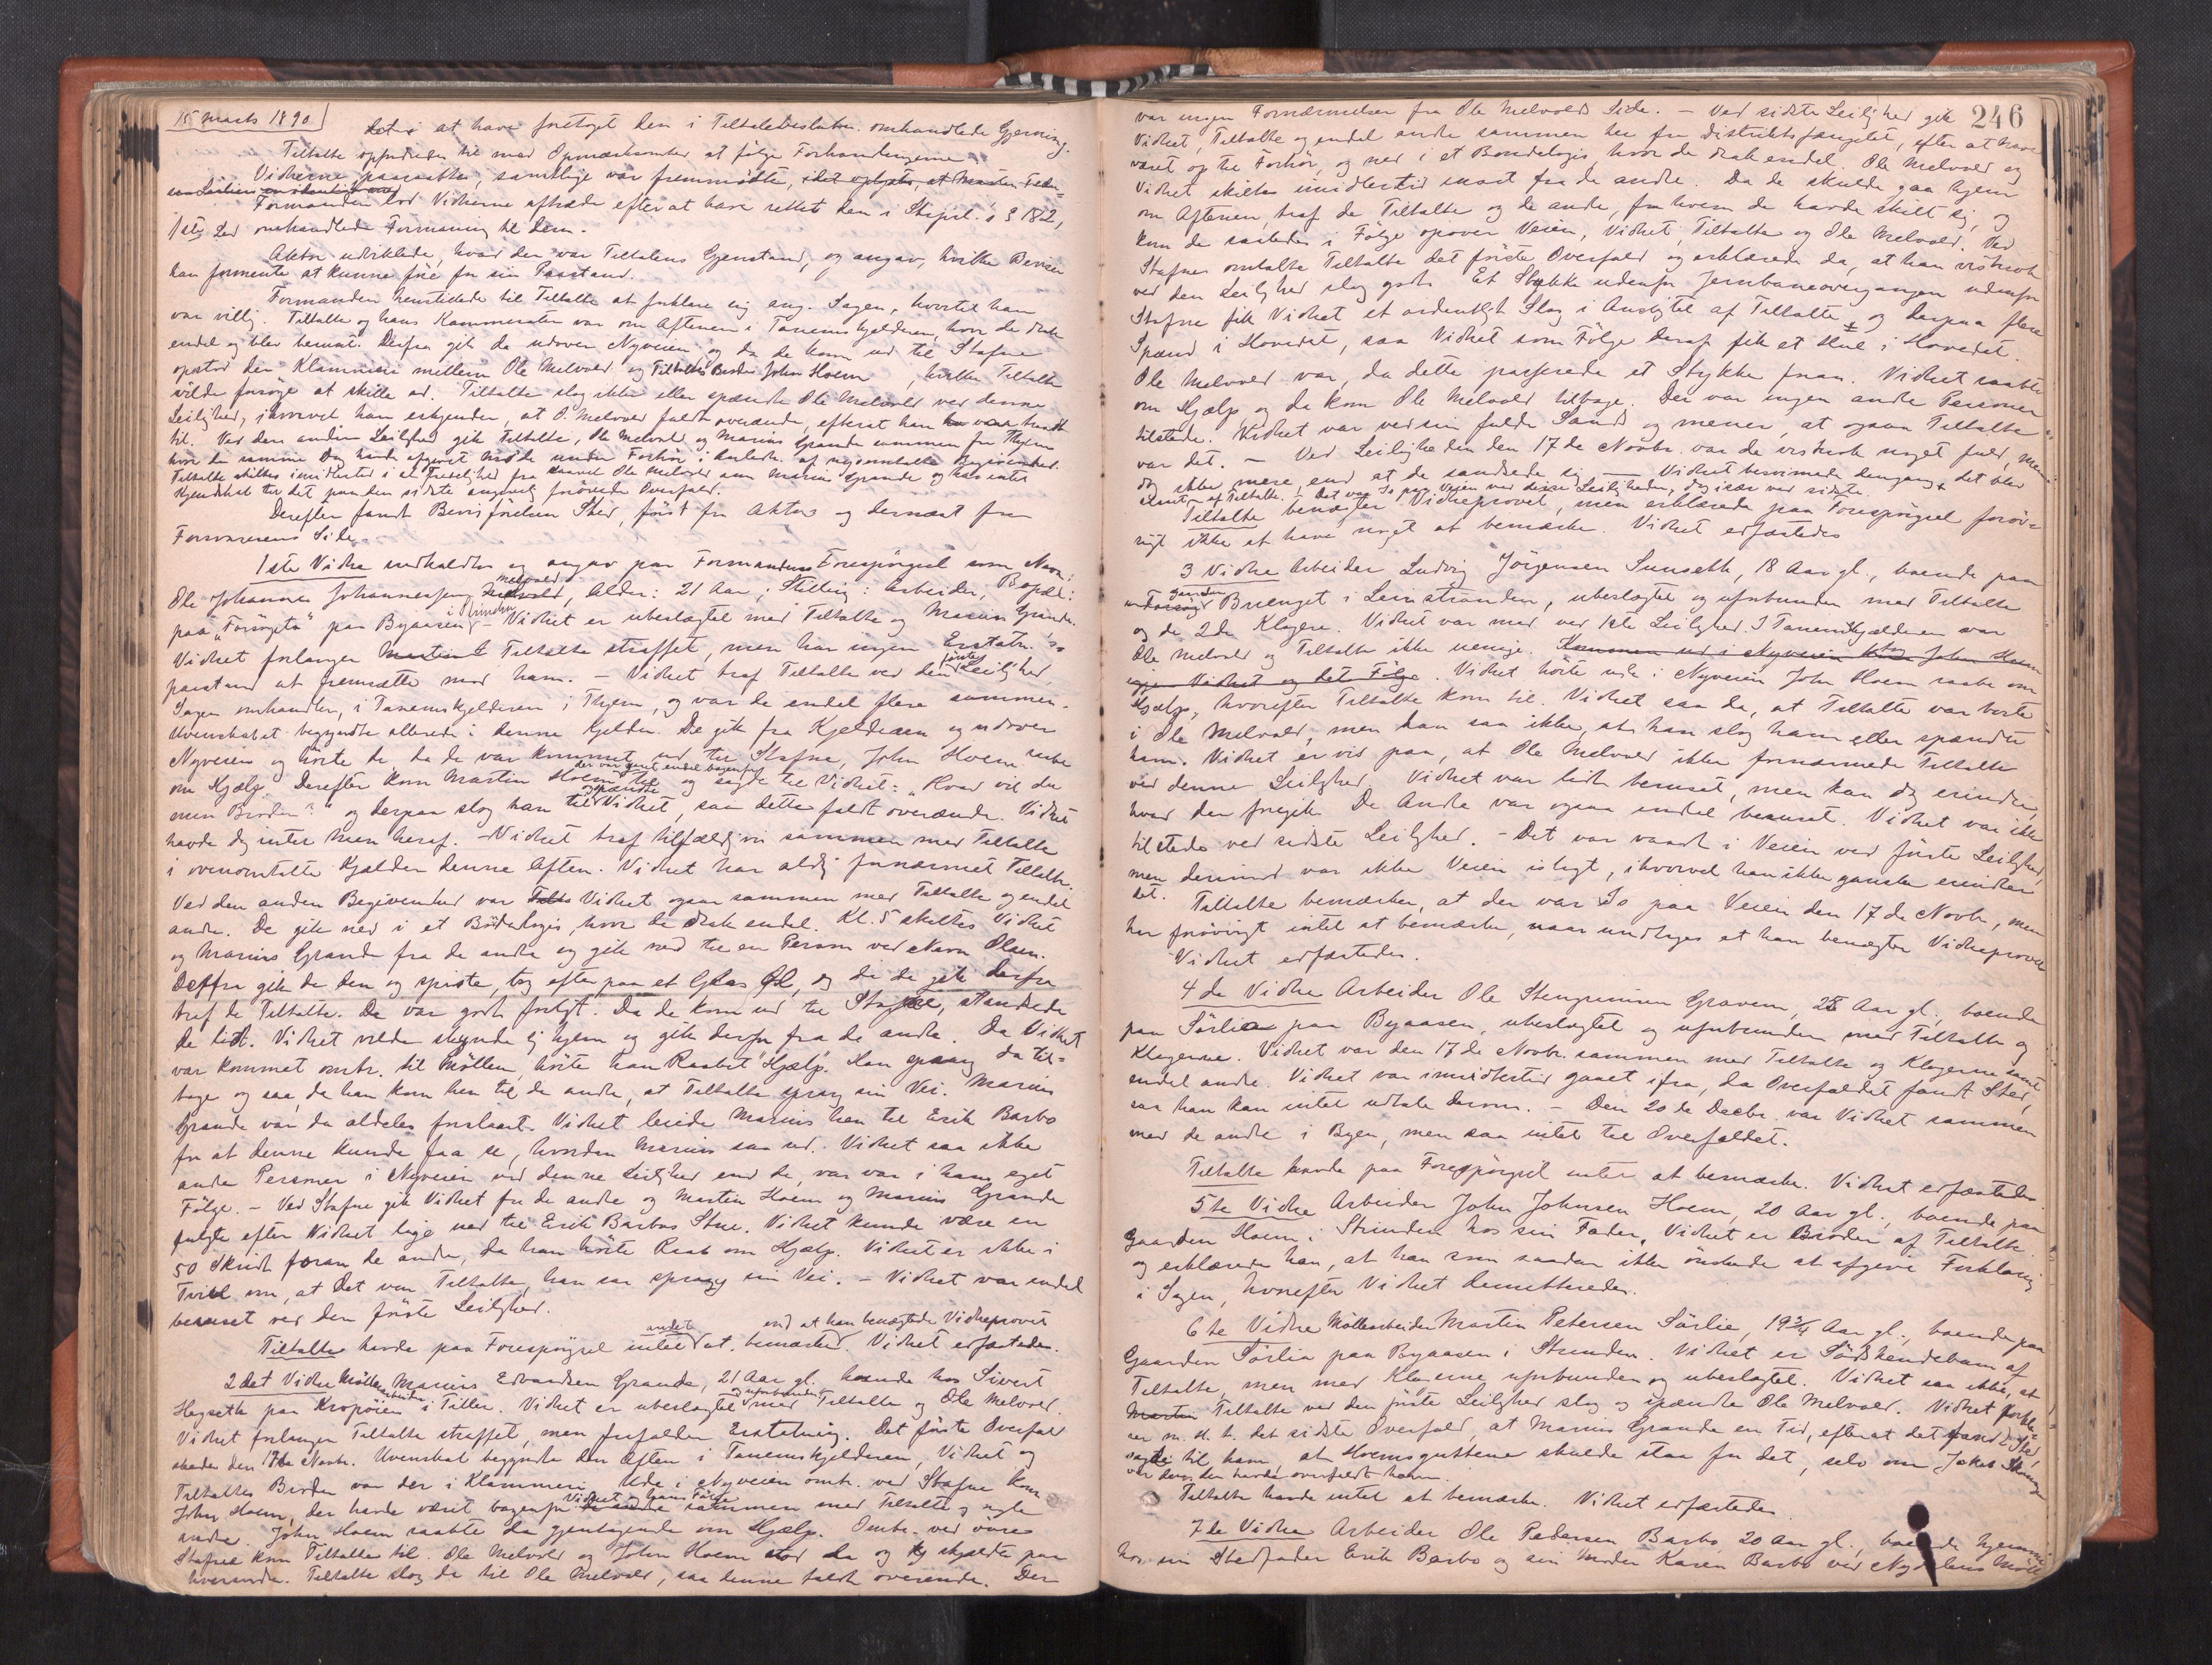 15 marts 1890
det i at have foretaget den i Tiltalebeslutn. omhandlede Gjerning.
Tiltalte opfordredes til med Opmærksomhed at følge Forhandlingerne.
Vidnerne paaraabtes, samtlige var fremmødte, idet oplystes, at Martin Peder-
sen Sørlien er identisk med
Formanden lod Vidnerne aftræde efter at have rettet den i Strprl.'s § 182,
1ste Led omhandlede Formaning til dem.
Aktor udviklede, hvad der var Tiltalens Gjenstand, og angav, hvilke Beviser
han formente at kunne føre for sin Paastand.
Formanden henstillede til Tiltalte at forklare sig ang. Sagen, hvortil han
var villig. Tiltalte og hans Kammerater var om Aftenen i Tanemskjelderen, hvor de drak
endel og blev beruset. Derfra gik de udover Nyveien og da de kom ud til Stafne
opstod der Klammeri mellem Ole Melvold og Tiltaltes Broder John Hoem, hvilke Tiltalte
vilde forsøge at skille ad. Tiltalte slog ikke eller spændte Ole Melvold ved denne
Leilighed, ihvorvel han erkjender, at O. Melvold faldt overænde, efterat han var traadt
til. Ved den anden Leilighed gik Tiltalte, Ole Melvold og Marius Grande sammen fra Thjem
hvor de samme Dag havde afgivet Møde under Forhør i Anledn. af nysomtalte Begivenhed.
Tiltalte skiltes imidlertid i al Fredelighed fra saavel Ole Melvold som Marius Grande og har intet
Kjendskab til det paa den sidste angivelig forøvede Overfald.
Derefter fandt Bevisførelsen Sted, først fra Aktors og dernæst fra
Forsvarerens Side.
1ste Vidne indkaldtes og angav paa Formandens Forespørgsel som Navn:
Ole Johannes Johannessen Melvold, Alder: 21 Aar, Stilling: Arbeider, Bopæl:
paa "Forsøget" paa Byaasen i Strinden. Vidnet er ubeslægtet med Tiltalte og Marius Grande.
Vidnet forlanger Tiltalte straffet, men har ingen Erstatn.'s-
paastand at fremsætte mod ham. - Vidnet traf Tiltalte ved den første Leilighed,
Sagen omhandler, i Tanemskjelderen i Thjem, og var de endel flere sammen.
Uvenskabet begyndte allerede i denne Kjelder. De gik fra Kjelderen og udover
Nyveien og hørte de, da de var kommet ud til Stafne, John Hoem raabe
om Hjælp. Derefter kom Martin Hoem, der var gaaet endel bagenfor til og sagde til Vidnet: "Hvad vil du
min Broder?" og derpaa slog han og spændte til Vidnet, saa dette faldt overænde. Vidnet
havde dog intet Men heraf. - Vidnet traf tilfældigvis sammen med Tiltalte
i ovenomtalte Kjelder denne Aften. Vidnet har aldrig fornærmet Tiltalte.
Ved den anden Begivenhed var Vidnet ogsaa sammen med Tiltalte og endel
andre. De gik ned i et Bondelogis, hvor de drak endel. Kl. 5 skiltes Vidnet
og Marius Grande fra de andre og gik ned til en Person ved Navn Olsen.
Derfra gik de hen og spiste, tog efterpaa et Glas Øl, og da de gik derfra
traf de Tiltalte. Da var godt forligt. Da de kom ud til Stafne, standsede
de lidt. Vidnet vilde skynde sig hjem og gik derfor fra de andre. Da Vidnet
var kommet omtr. til Møllen, hørte han Raabet "Hjælp". Han sprang da til-
bage og saa, da han kom hen til de andre, at Tiltalte sprang sin Vei. Marius
Grande var da aldeles forslaaet. Vidnet leiede Marius hen til Erik Barbo
for at denne kunde faa se, hvordan Marius saa ud. Vidnet saa ikke
andre Personer i Nyveien ved denne Leilighed end de, der var i hans eget
Følge. - Ved Stafne gik Vidnet fra de andre og Martin Hoem og Marius Grande
fulgte efter Vidnet lige ned til Erik Barbos Stue. Vidnet kunde være en
50 Skridt foran de andre, da han hørte Raab om Hjælp. Vidnet er ikke i
Tvil om, at det var Tiltalte, han saa sprang sin Vei. - Vidnet var endel
beruset ved den første Leilighed.
Tiltalte havde paa Forespørgsel intet andet at bemærke end at han benægtede Vidneprovet. Vidnet erfæstedes.
2det Vidne Møllearbeider Marius Edvardsen Grande, 21 Aar gl. boende hos Sivert
Hegseth paa Kropøien i Tiller. Vidnet er ubeslægtet og uforbunden med Tiltalte og Ole Melvold.
Vidnet forlanger Tiltalte straffet, men frafalder Erstatning. Det første Overfald
skede den 17de Novbr. Uvenskab begyndte den Aften i Tanemskjelderen, Vidnet og
Tiltaltes Broder var der i Klammeri. Ude i Nyveien omtr. ved Stafne kom
John Hoem, der havde været bagenfor Vidnet og hans Følge sammen med Tiltalte og nogle
andre. John Hoem raabte da gjentagende om Hjælp. Omtr. ved øvre
Stafne kom Tiltalte til. Ole Melvold og John Hoem stod da og skjældte paa
hverandre. Tiltalte slog da til Ole Melvold, saa denne faldt overende. Der
246
var ingen Fornærmelser fra Ole Melvolds Side. - Ved sidste Leilighed gik
Vidnet, Tiltalte og endel andre sammen her fra Distriktsfængslet, efter at have
været op til Forhør, og ned i et Bondelogis, hvor de drak endel. Ole Melvold og
Vidnet skiltes imidlertid snart fra de andre. Da de skulde gaa hjem
om Aftenen, traf de Tiltalte og de andre, fra hvem de havde skilt sig, og
kom de saaledes i Følge opover Veien, Vidnet, Tiltalte og Ole Melvold. Ved
Stafne omtalte Tiltalte det første Overfald og erklærede da, at han vistnok
ved den Leilighed slog godt. Et Stykke udenfor Jernbaneovergangen udenfor
Stafne fik Vidnet et ordentligt Slag i Ansigtet af Tiltalte og derpaa flere
Spænd i Hovedet, saa Vidnet som Følge deraf fik et Hul i Hovedet.
Ole Melvold var, da dette passerede et Stykke foran. Vidnet raabte
om Hjælp og da kom Ole Melvold tilbage. Der var ingen andre Personer
tilstede. Vidnet var ved sin fulde Sands og mener, at ogsaa Tiltalte
var det. - Ved Leiligheden den 17de Novbr. var de vistnok noget fulde, men
dog ikke mere, end at de sandsede sig. - Vidnet besvimede dengang, det blev
slaaet af Tiltalte. - Det var Is paa Veien ved disse Leiligheder, dog især ved sidste.
Tiltalte benægter Vidneprovet, men erklærede paa Forespørgsel forøv-
rigt ikke at have noget at bemærke. Vidnet erfæstedes
3 Vidne Arbeider Ludvig Jörgensen Sunseth, 18 Aar gl., boende paa
Gaarden Bruenget i Leinstranden, ubeslægtet og uforbunden med Tiltalte
og de 2de Klagere. Vidnet var med ved 1ste Leilighed. I Tanemskjælderen var
Ole Melvold og Tiltalte ikke uenige. Kommen ud i Nyveien John Hoem
Vidnet og det Følge. Vidnet hörte ude i Nyveien John Hoem raabe om
Hjælp, hvorefter Tiltalte kom til. Vidnet saa da, at Tiltalte var borte
i Ole Melvold, men han saa ikke, at han slog ham eller spændte
ham. Vidnet er vis paa, at Ole Melvold ikke fornærmede Tiltalte
ved denne Leilighed. Vidnet var lidt beruset, men kan dog erindre,
hvad der foregik. De Andre var ogsaa endel beruset. Vidnet var ikke
tilstede ved sidste Leilighed. - Det var vaadt i Veien ved første Leilighed,
men derimod var ikke Veien isligt, ihvorvel han ikke ganske erindrer
det.
Tiltalte bemærker, at der var Is paa Veien den 17de Novbr, men
har forøvrigt intet at bemærke, naar undtages at han benægter Vidneprovet
Vidnet erfæstedes.
4de Vidne Arbeider Ole Stengrimsen Graven, 25 Aar gl., boende
paa Sørlien paa Byaasen, ubeslægtet og uforbunden med Tiltalte og
Klagerne. Vidnet var den 17de Novbr. sammen med Tiltalte og Klagerne samt
endel andre. Vidnet var imidlertid gaaet ifra, da Overfaldet fandt Sted,
saa han kan intet udtale derom. - Den 20de Decbr. var Vidnet sammen
med de andre i Byen, men saa intet til Overfaldet.
Tiltalte havde paa Forespørgsel intet at bemærke. Vidnet erfæstedes
5te Vidne Arbeider John Johnsen Hoem, 20 Aar gl., boende paa
Gaarden Hoem i Strinden hos sin Fader. Vidnet er Broder af Tiltalte
og erklærede han, at han som saadan ikke ønskede at afgive Forklaring
i Sagen, hvorefter Vidnet demitteredes.
6te Vidne Møllearbeider Martin Petersen Sörlie, 19 3/4 Aar gl., boende paa
Gaarden Sörlie paa Byaasen i Strinden. Vidnet er Sødskendebarn af
Tiltalte, men med Klagerne uforbunden og ubeslægtet. Vidnet saa ikke, at
Martin Tiltalte ved den første Leilighed slog og spændte Ole Melvold. Vidnet forkla-
rer m. H. t. det sidste Overfald, at Marius Grande en Tid, efter at det fandt Sted,
sagde til ham, at Hoemsguttene skulde staa for det, selv om Jakob
var den der havde overfaldt ham.
Tiltalte havde intet at bemærke. Vidnet erfæstedes.
7de Vidne Arbeider Ole Pedersen Barbo, 20 Aar gl., boende hjemme
hos sin Stedfader Erik Barbo og sin Moder Karen Barbo ved Nydalens Mølle